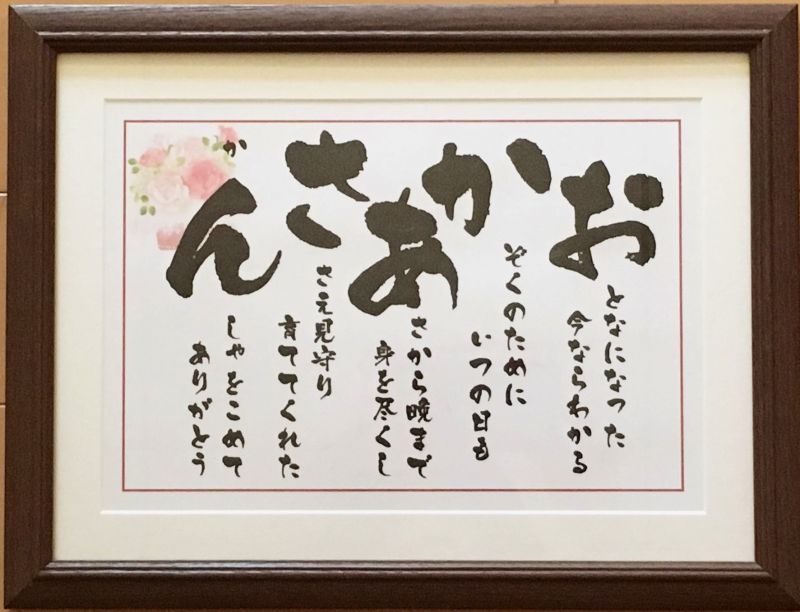 おとなになった
今ならわかる
かぞくのために
いつの日も
あさから晩まで
身を尽くし
ささえ見守り
育ててくれた
かんしゃをこめて
ありがとう